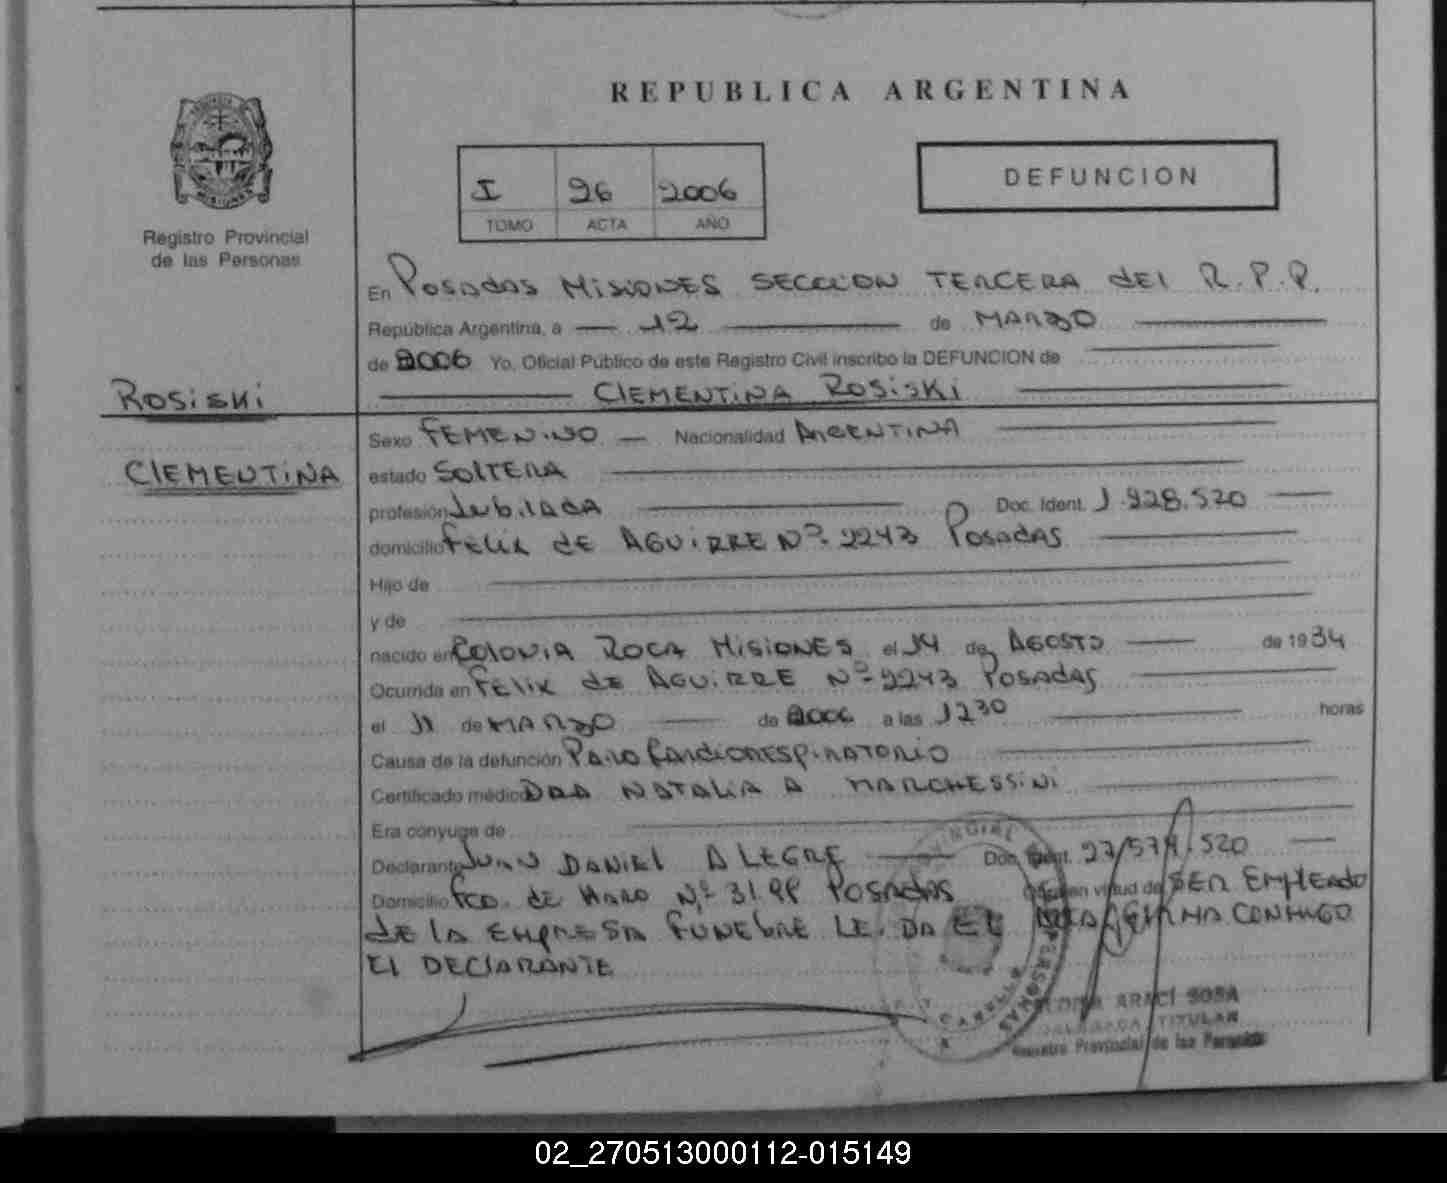 REPUBLICA ARGENTINA
I 96 2006
TOMO ACTA AÑO
DEFUNCION
Registro Provincial
de las Personas
En Posadas Misiones SECCION TERCERA del R.P.P.
República Argentina, a 12 de MARZO
de 2006 Yo, Oficial Público de este Registro Civil inscribo la DEFUNCION de
Rosiski
CLEMENTINA ROSISKI
Sexo FEMENINO Nacionalidad ARGENTINA
CLEMENTINA
estado SOLTERA
profesión Jubilada Doc. Ident. 1.928.520
domicilio Felix de AGUIRRE Nº 2243 Posadas
Hijo de
y de
nacido en Colonia ROCA MISIONES el 14 de AGOSTO de 1934
Ocurrida en Felix de AGUIRRE Nº 2243 Posadas
el 11 de MARZO de 2006 a las 1230 horas
Causa de la defunción Paro Cardiorespiratorio
Certificado médico DRA NATALIA A MARCHESSINI
Era cónyuge de
Declarante Juan DANIEL ALEGRE Doc. Ident. 27.574.520
Domicilio Fco. de Haro Nº 3199 POSADAS en virtud de SER EMPLEADO
de la EMPRESA FUNEBRE LE. DA EL FIRMA CONMIGO
El DECLARANTE
ARACI SOSA
TITULAR
Registro Provincial de las Personas
02_270513000112-015149